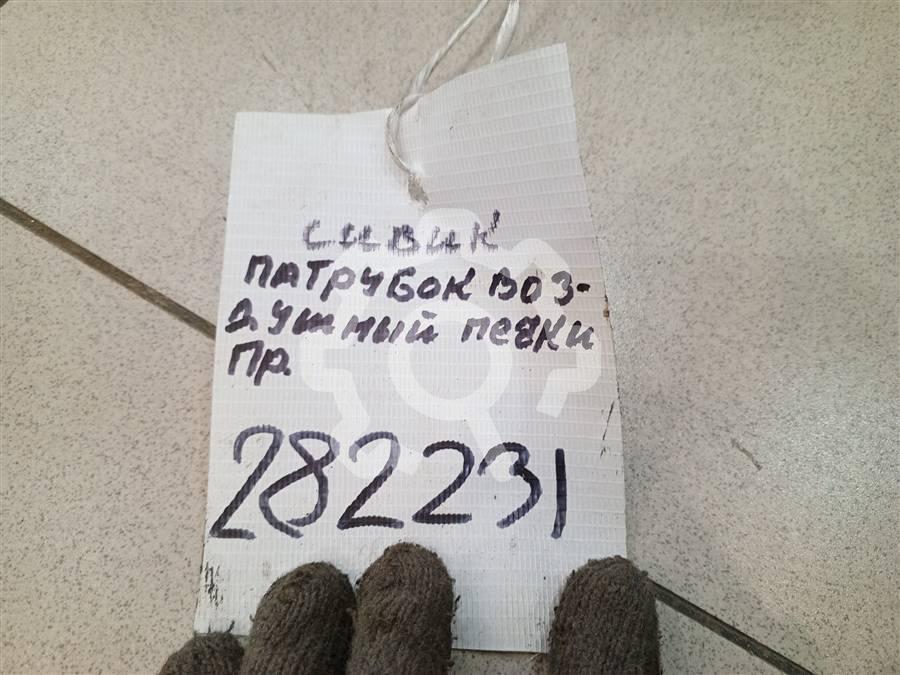 СИВИК
ПАТРУБОК ВОЗ-
ДУШНЫЙ ПЕЧКИ
ПР.
282231